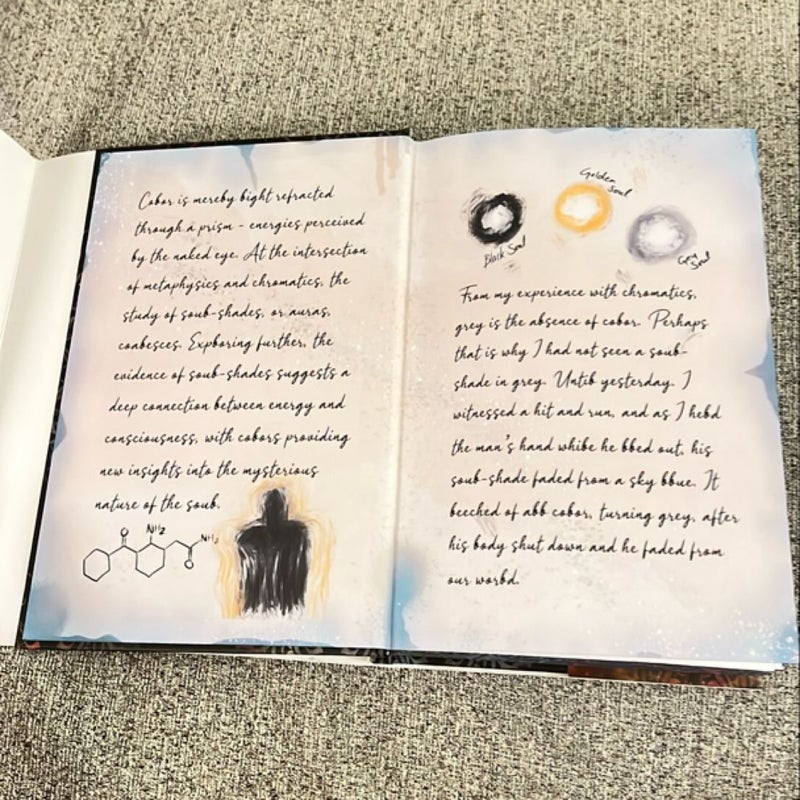 Color is merely light refracted
through a prism - energies perceived
by the naked eye. At the intersection
of metaphysics and chromatics, the
study of soul-shades, or auras,
coalesces. Exploring further, the
evidence of soul-shades suggests a
deep connection between energy and
consciousness, with colors providing
new insights into the mysterious
nature of the soul.
O NH2 NH2
O
Golden
Soul
Black Soul
Grey Soul
From my experience with chromatics,
grey is the absence of color. Perhaps
that is why I had not seen a soul-
shade in grey. Until yesterday. I
witnessed a hit and run, and as I held
the man's hand while he bled out, his
soul-shade faded from a sky blue. It
leeched of all color, turning grey, after
his body shut down and he faded from
our world.